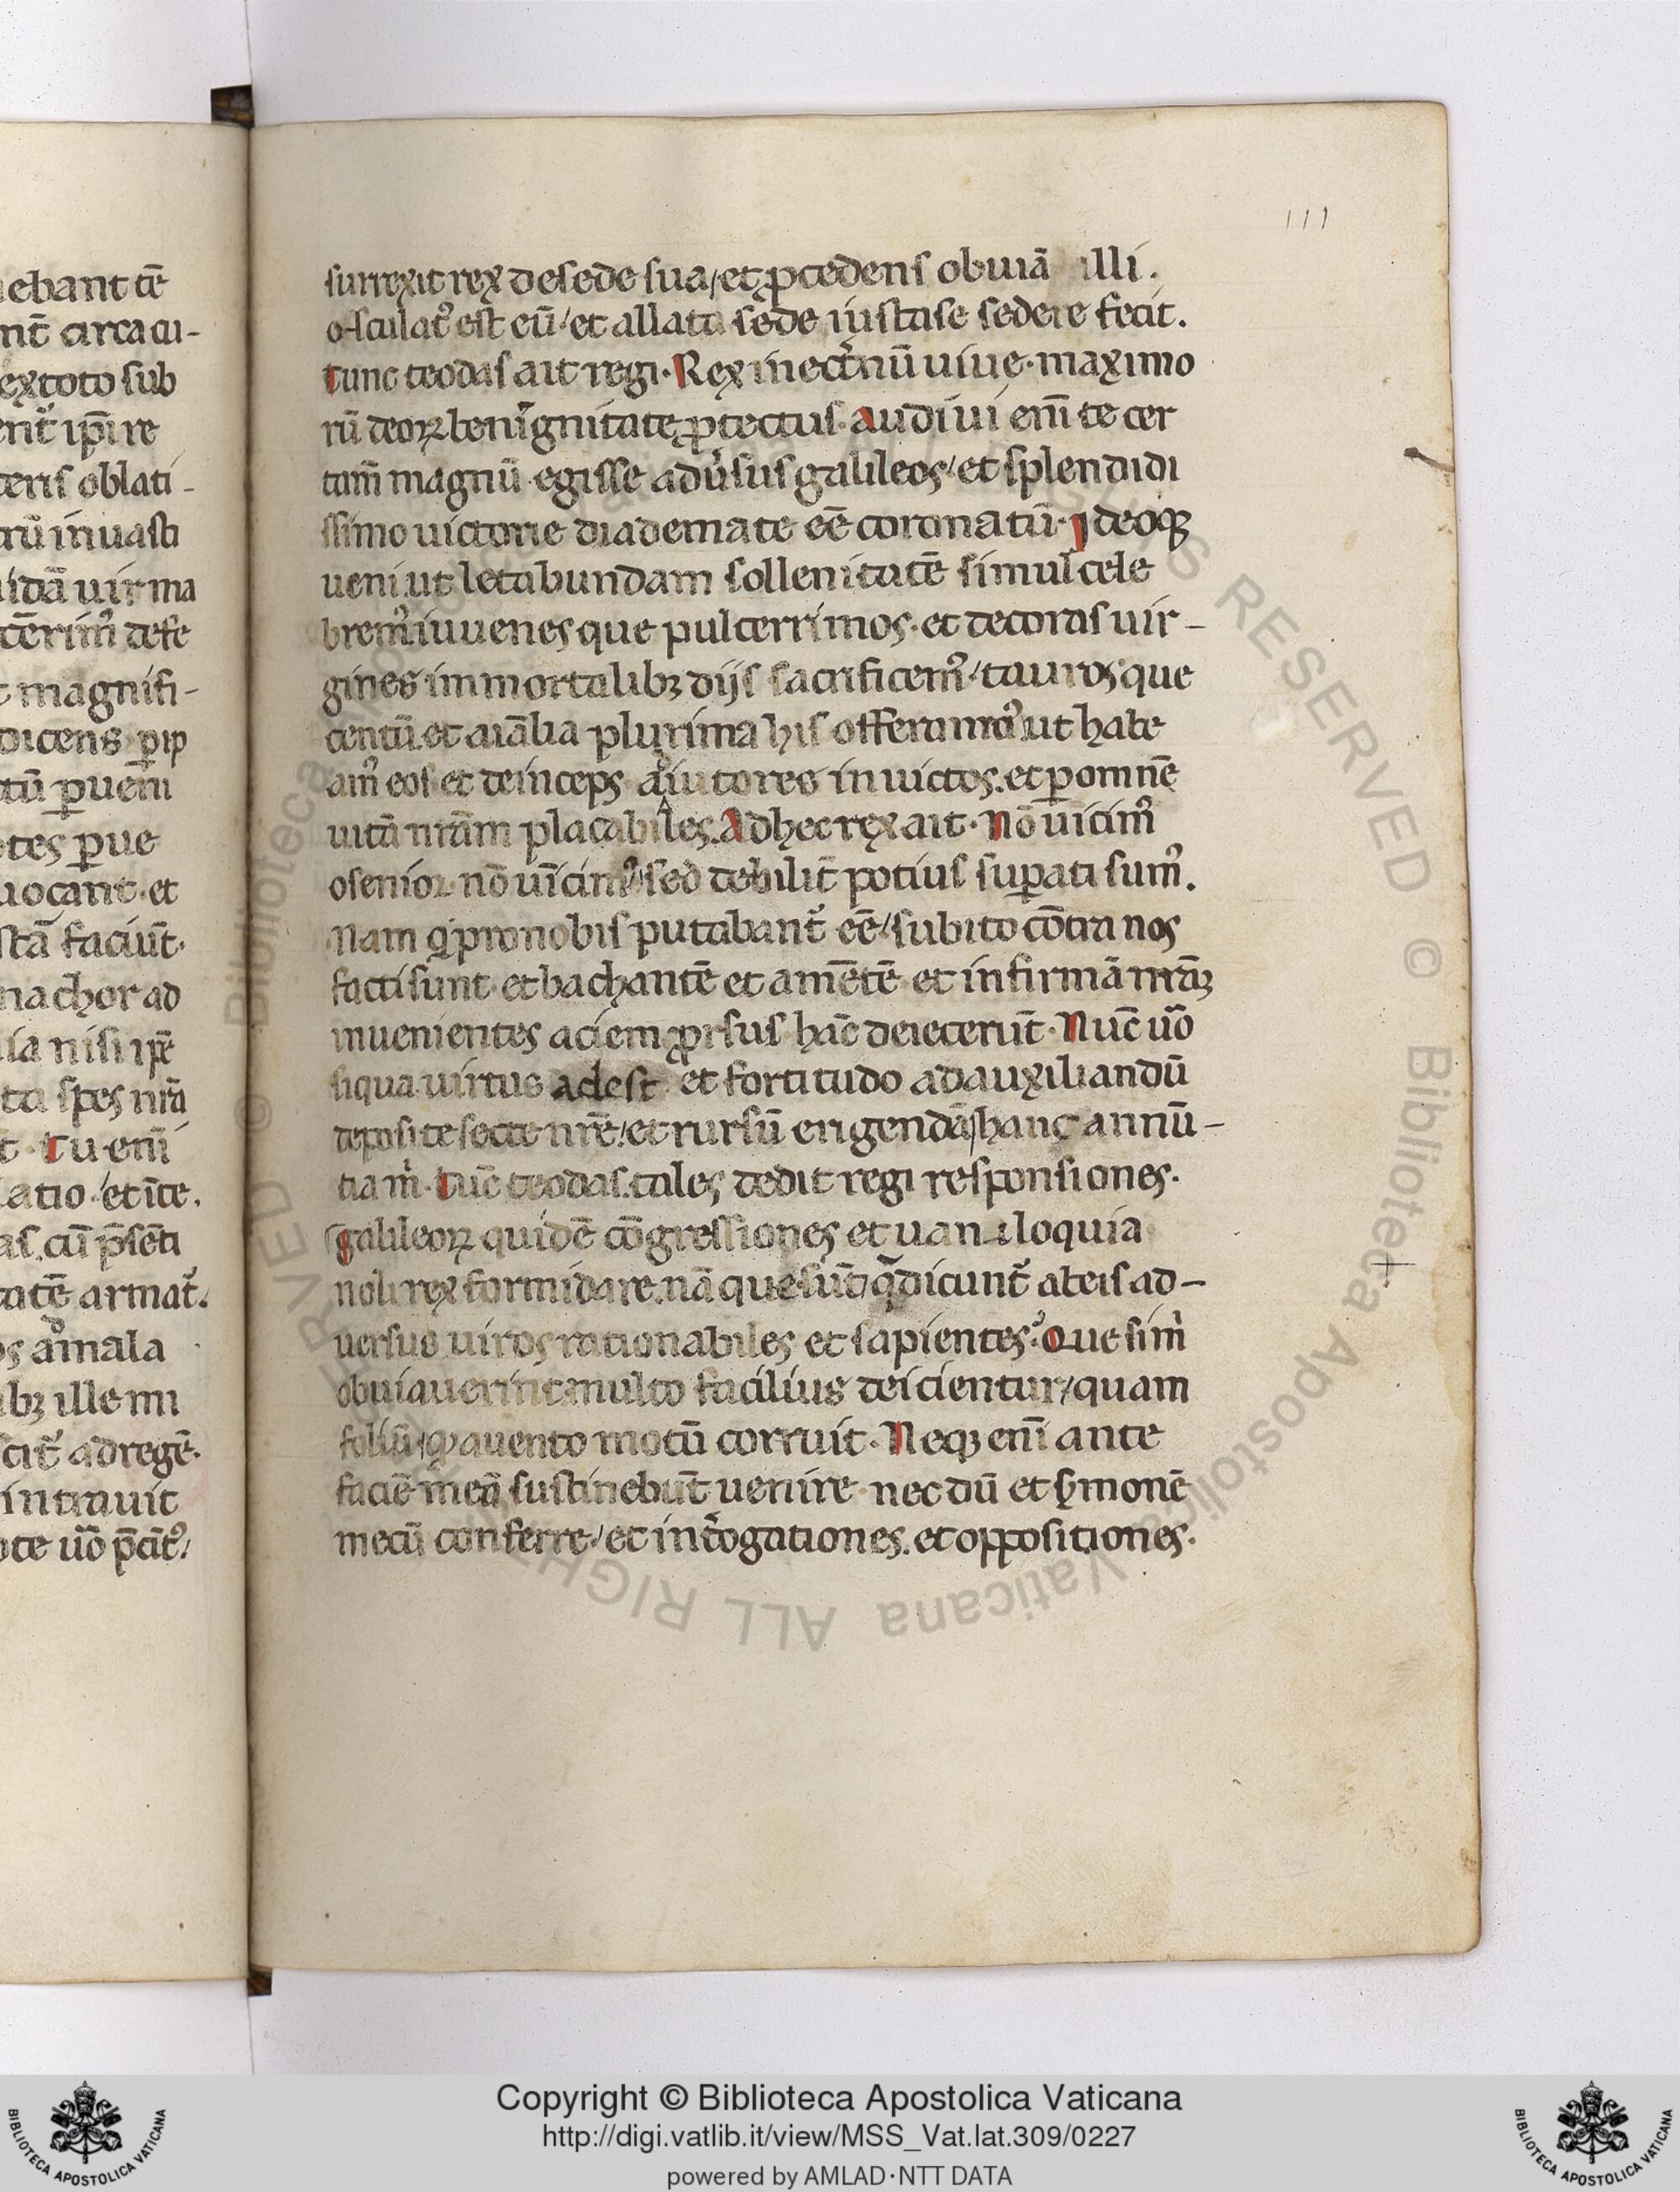 111
surrexit rex de sede sua/et ꝓcedens obuiā illi.
osculatꝰ est eū/et allata sede iusta se sedere fecit.
tunc teodas ait regi. Rex in et̃nū uiue. maximo
rū deoꝝ benignitate ꝓtectus. audiui em̄ te cer
tam̄ magnū egisse adu̾sus galileos/et splendidi
ssimo uictorie diademate eē coronatū. Ideoqꝫ
ueni ut letabundam sollenitatē simul cele
bremꝰ. iuuenes que pulcerrimos. et decoras uir-
gines immortalibꝫ dijs sacrificemꝰ/tauros que
centū. et aīalia plurima his offeramꝰ ut habe
amꝰ eos et deinceps adiutores inuictos. et ꝑ omnē
uitā nrām placabiles. Ad hec rex ait. Nō uicimꝰ
o senior nō uicimꝰ/sed debilit̄ potius suꝑati sumꝰ.
Nam q pro nobis putabant̾ eē/subito cōtra nos
facti sunt. et bachantē et amētē et infirmā nrāꝫ
inuenientes aciem ꝓrsus hāc deiecerūt. Nūc u̅o
siqua uirtus adest et fortitudo ad auxiliandū
deposite secte nrē/et rursū erigendā/hanc annū-
tiam. tūc teodas. tales dedit regi responsiones.
galileoꝝ quidē cōgressiones et uaniloquia
noli rex formidare. nā que sūt/q̄ dicunt̾ ab eis ad-
uersus uiros rationabiles et sapientes? Que sim̾
obuiauerint multo facilius deicientur/quam
foliū/qꝫ a uento motū corruit. Neqꝫ enī ante
faciē meā sustinebūt uenire. nec dū et s̾monē
mecū conferre/et int̾rogationes. et oppositiones.
ebant tē
nt̄ circa cu-
ex toto sub
ent̾ ip̄i re
teris oblati-
rū inuasti
idā uir ma
tērimꝰ defe
magnifi-
dicens ꝑ ip
tū ꝑueni
tes ꝑue
uocant. et
stā faciūt.
nachor ad
ia nisi ip̄e
ta spes nrā
t. Tu enī
latio/et īte.
as cū p̄sēti
tatē armat̾.
os aīmala
ibꝫ ille mi
cit̾ ad regē.
intrauit
ote u̅o p̄cit̾/
Copyright © Biblioteca Apostolica Vaticana
http://digi.vatlib.it/view/MSS_Vat.lat.309/0227
powered by AMLAD·NTT DATA
BIBLIOTECA APOSTOLICA VATICANA
BIBLIOTECA APOSTOLICA VATICANA
© Biblioteca Apostolica Vaticana ALL RIGHTS RESERVED